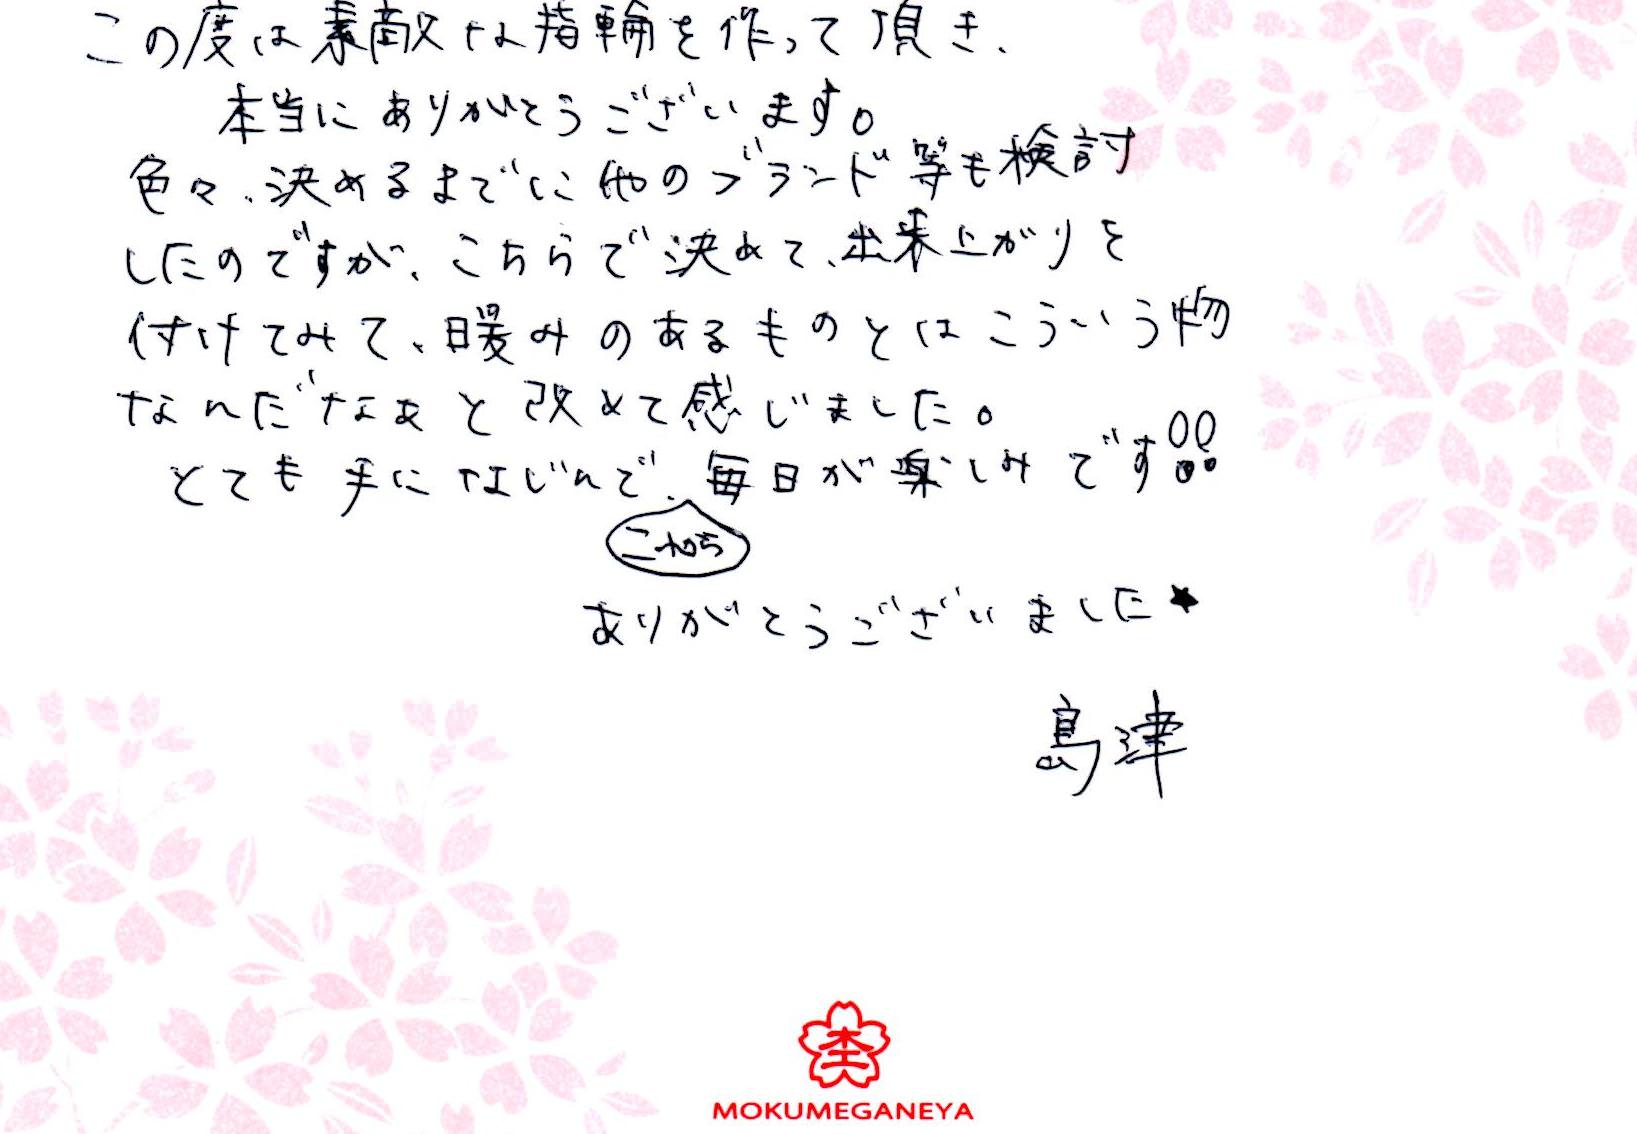 この度は素敵な指輪を作って頂き、
本当にありがとうございます。
色々、決めるまでに他のブランド等も検討
したのですが、こちらで決めて、出来上がりを
付けてみて、暖みのあるものとはこういう物
なんだなぁと改めて感じました。
とても手になじんで、毎日が楽しみです!!
これから
ありがとうございました★
島津
杢
MOKUMEGANEYA